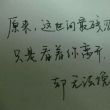 原来，这世间最残忍
只是看着你离开，
却无法说